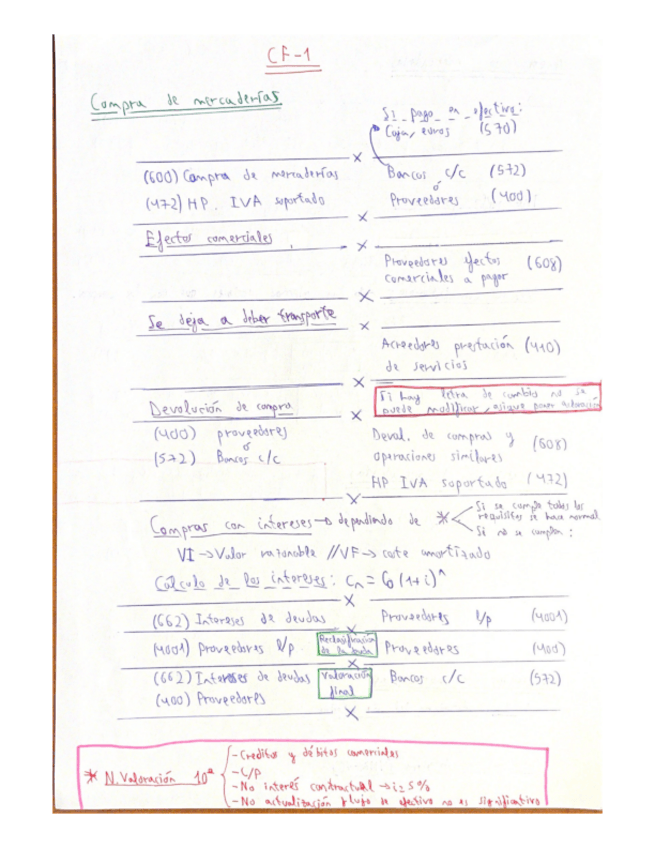 CF-1
Compra de mercaderías
Si pago en efectivo:
Caja, euros (570)
(600) Compra de mercaderías Bancos c/c (572)
ó
(472) HP. IVA soportado Proveedores (400)
Efectos comerciales
Proveedores efectos (608)
comerciales a pagar
Se deja a deber transporte
Acreedores prestación (410)
de servicios
Si hay letra de cambio no se
puede modificar,
Devolución de compra
(400) proveedores Deval. de compras y (608)
ó
(572) Bancos c/c operaciones similares
HP IVA soportado (472)
Compras con intereses → dependiendo de *
Si se cumple todos los
requisitos se hace normal
Si no se cumplen:
VI → Valor razonable // VF → coste amortizado
Cálculo de los intereses: Cn = C0 (1+i)^n
(662) Intereses de deudas Proveedores l/p (4001)
(4001) Proveedores l/p Reclasificación de la deuda Proveedores (400)
(662) Intereses de deudas Valoración final Bancos c/c (572)
(400) Proveedores
* N. Valoración 10ª
- Creditos y débitos comerciales
- C/P
- No interés contractual → i≥5%
- No actualización flujo de efectivo no es significativo